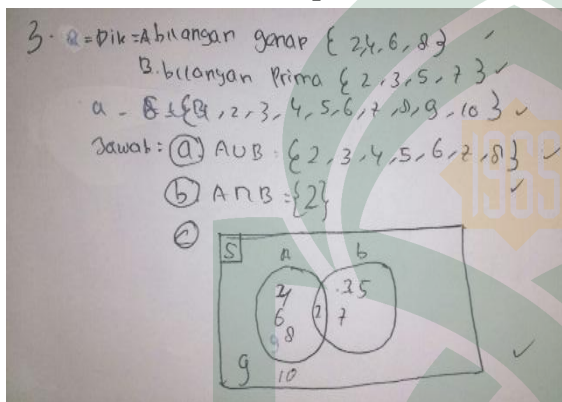 3. Dik = A bilangan genap { 2,4, 6, 8 }
B. bilangan Prima { 2, 3, 5, 7 }
S = { 1, 2, 3, 4, 5, 6, 7, 8, 9, 10 }
Jawab : (a) A∪B : { 2, 3, 4, 5, 6, 7, 8 }
(b) A∩B = {2}
(c)
S a b
4 2 3 5
6 7
8
9 10
1965